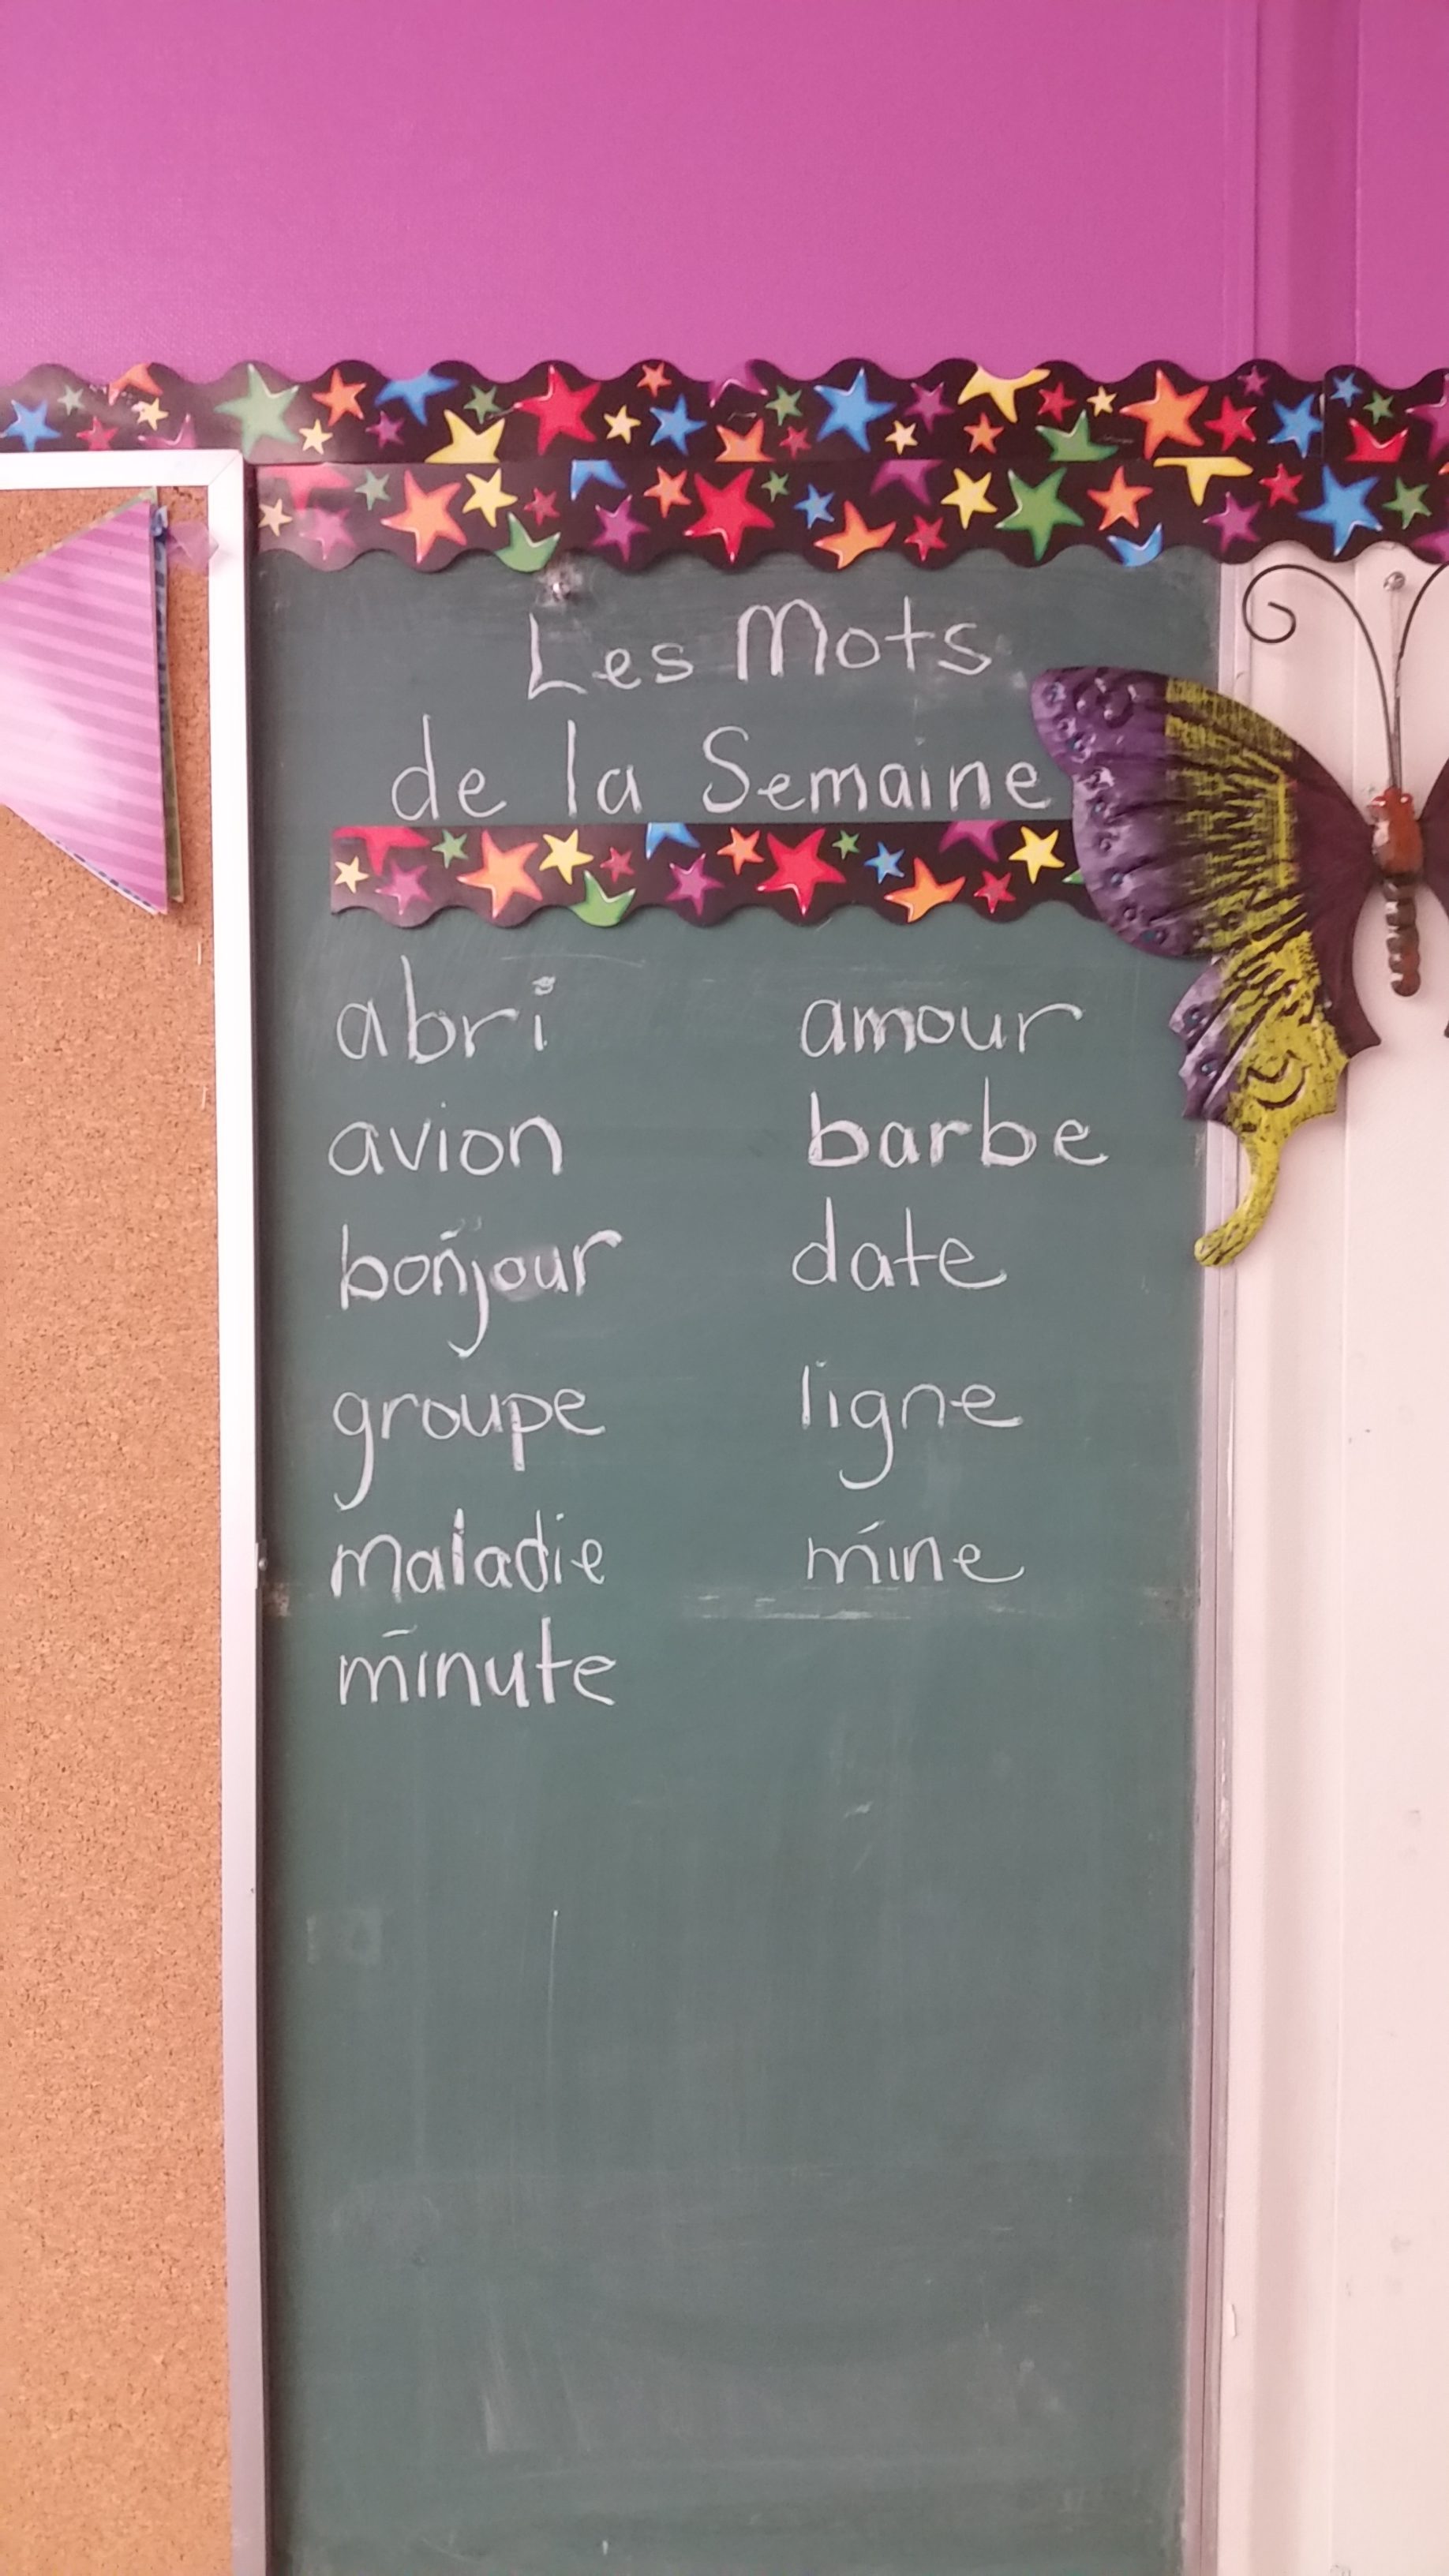 Les Mots
de la Semaine
abri
avion
bonjour
groupe
maladie
minute
amour
barbe
date
ligne
mine